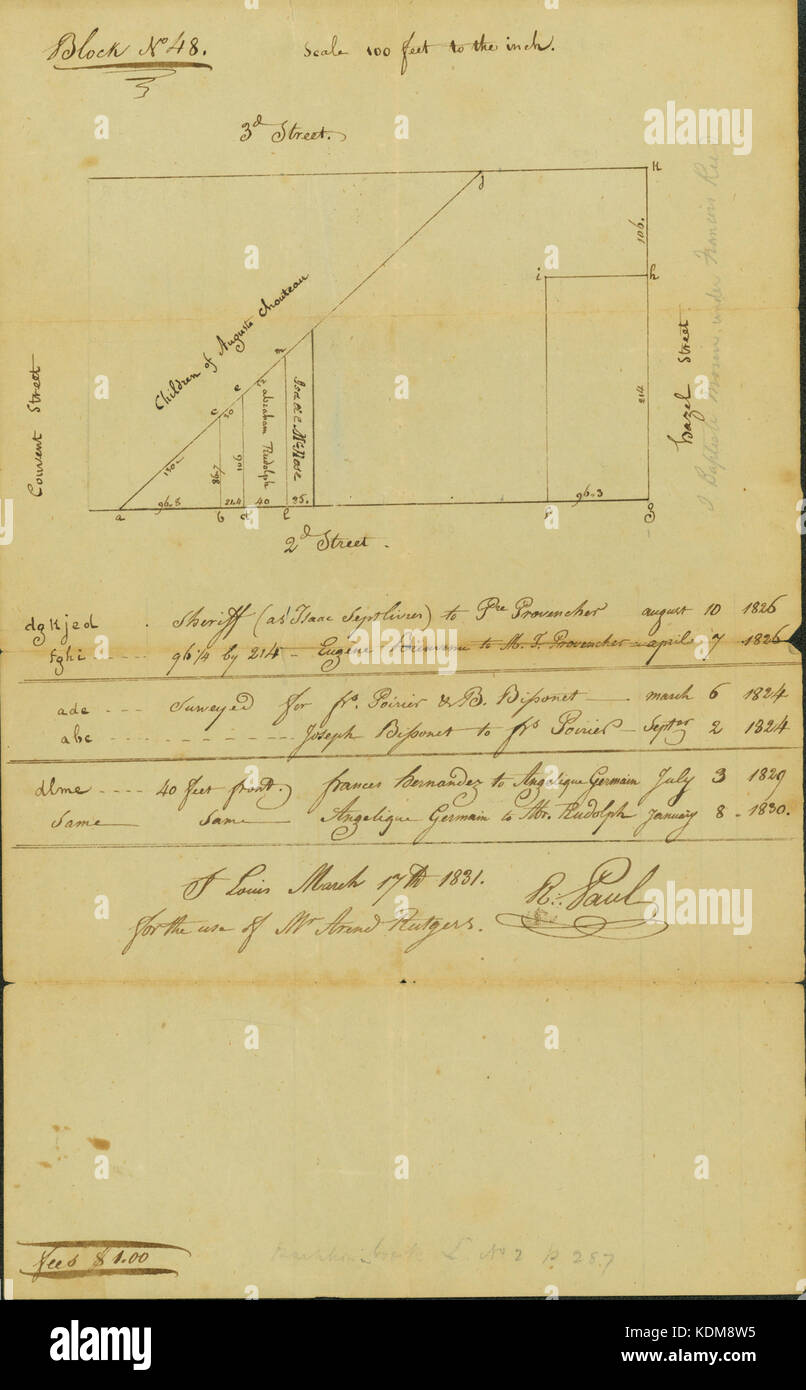 Block No 48.
Scale 100 feet to the inch.
3d Street.
j
K
106.
i
h
Children of Auguste Chouteau
Convent Street
Hazel Street.
214
m
e
c
30
130
86.7
106
Abraham Rudolph
Isaac C. McNose
a
96.8
b
21.4
d
40
l
25.
f
96.3
g
2d Street.
J Baptiste under Francois
dgKjed . Sheriff (as Isaac Septlivres) to Pre Provencher august 10 1826
fghi ---- 96 1/4 by 214 - Eugene to M. F. Provencher - april 7 1826
ade --- Surveyed for frs. Poirier & B. Bissonet — march 6 1824
abc - - - - - - - - - Joseph Bissonet to frs Poirier — Septer 2 1824
dlme ---- 40 feet front. frances Hernandez to Angelique Germain July 3 1829
Same — Same — Angelique Germain to Abr. Rudolph January 8 - 1830.
St Louis March 17th 1831.
R. Paul
for the use of Mr Arend Rutgers.
fees $1.00
book L. No 2 p. 287
a alamy stock photo
KDM8W5
www.alamy.com